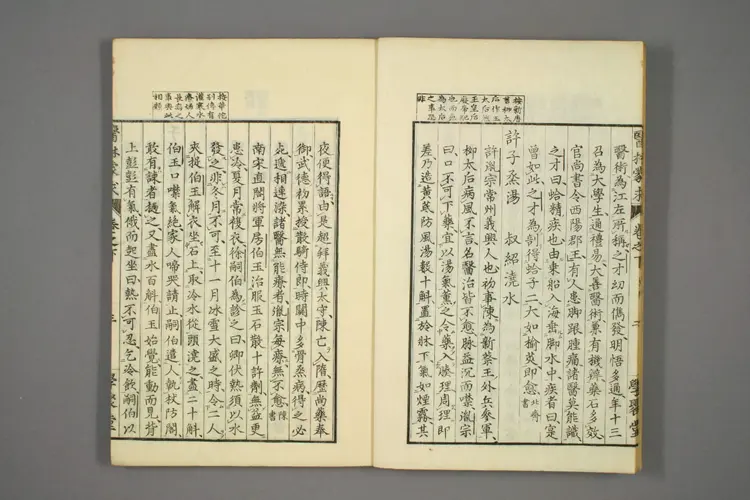 醫術為江左所稱之才幼而儁發明悟多通年十三
召為大學生通禮易大善醫術兼有機辯藥石多效
官尚書令西陽郡王有人患脚跟腫痛諸醫莫能識
之才曰蛤精疾也由乘船入海垂脚水中疾者曰寔
曾如此之才為剖得蛤子二大如榆莢即愈 北齊書
許子蒸湯 叔紹澆水
許胤宗常州義興人也初事陳為新蔡王外兵參軍
柳太后病風不言名醫治皆不愈脉益沉而噤胤宗
曰口不可下藥宜以湯氣薰之令藥入腠理周理即
差乃造黃蓍防風湯數十斛置於牀下氣如煙霧其
夜便得語由是超拜義興太守陳亡入隋歷尚藥奉
御武德初累授散騎侍即時關中多骨蒸病得之必
死遞相連染諸醫無能療者胤宗每療無不愈 陳書
南宋直閣將軍房伯玉治服玉石散十許劑無益更
患冷夏月常複衣徐嗣伯為診之曰卿伏熱須以水
發之非冬月不可至十一月冰雪大盛之時令二人
夾捉伯玉解衣坐石上取冷水從頭澆之盡二十斛
伯玉口噤氣絶家人啼哭請止嗣伯遣人執杖防閣
敢有諫者撾之又盡水百斛伯玉始覺能動而見背
上彭彭有氣俄而起坐曰熱不可忍乞冷飲嗣伯以
醫林蒙求
卷之下
學醫堂